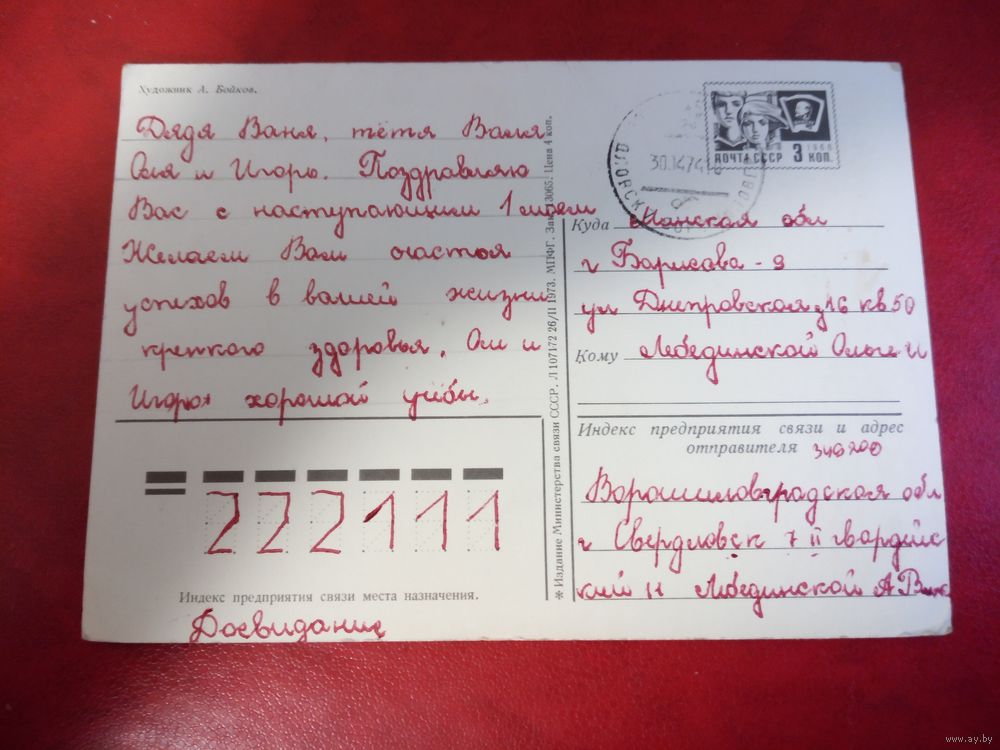 Художник А. Бойков.
Дядя Ваня, тётя Валя
Оля и Игорь. Поздравляю
Вас с наступающим 1 маем
Желаем Вам счастья
успехов в вашей жизни
крепкого здоровья, Оли и
Игорю хорошой учёбы.
222111
Индекс предприятия связи места назначения.
Досвидание
* Издание Министерства связи СССР. Л 107172 26/II 1973. МПФГ. Зак. 13065. Цена 4 коп.
ПОЧТА СССР 3 КОП.
1966
30.1474
Куда Минская обл
г Борисова - 9
ул Днепровская д 16 кв 50
Кому Лебединской Ольге И
Индекс предприятия связи и адрес
отправителя 349200
Ворошиловградская обл
г Свердловск 7 II гвардейс
кий 11 Лебединской А
www.ay.by